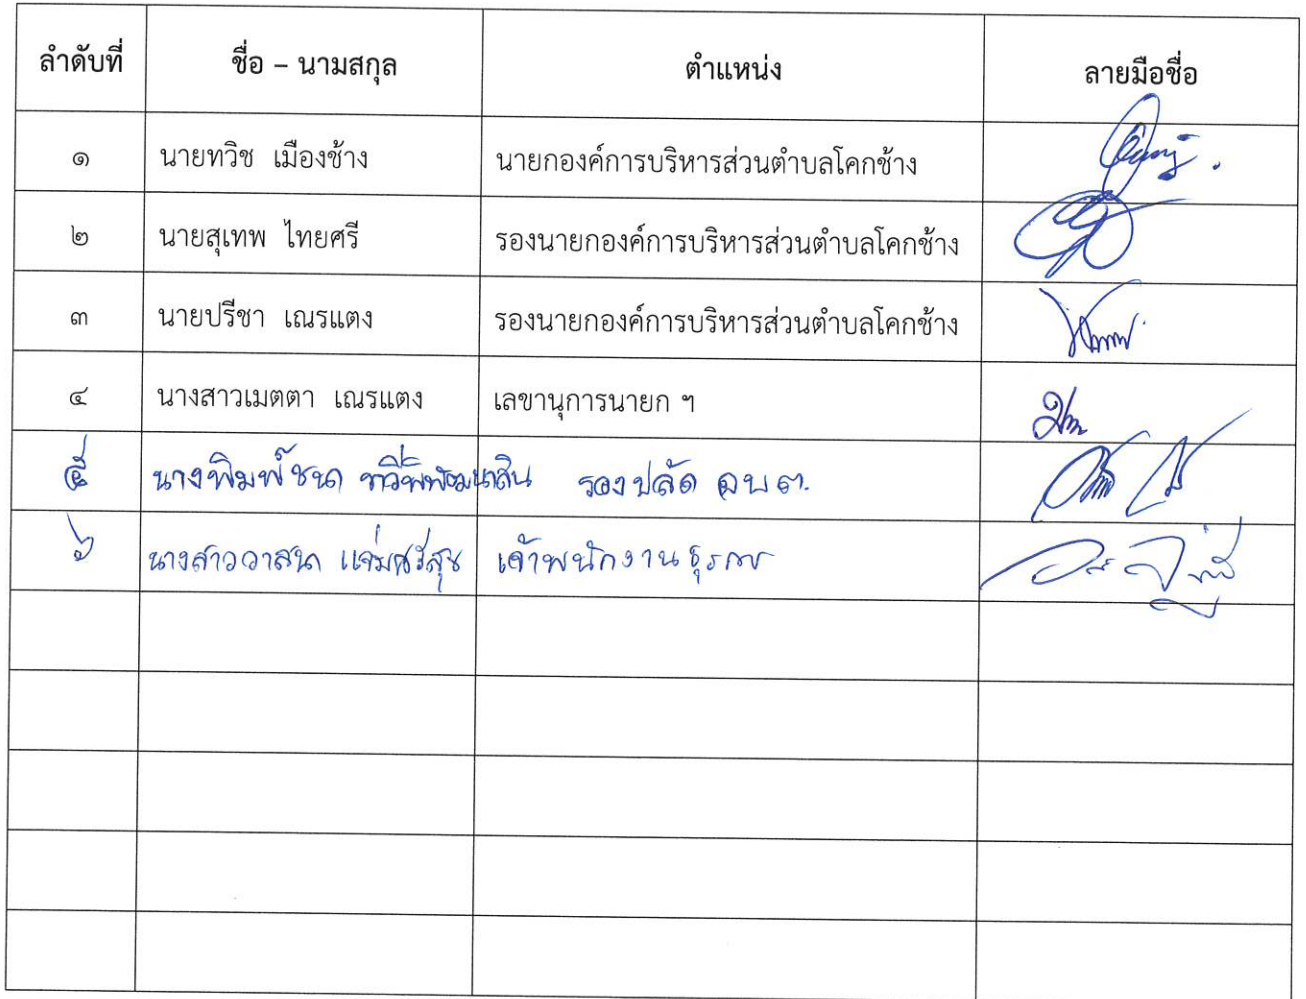 ลำดับที่ ชื่อ – นามสกุล ตำแหน่ง ลายมือชื่อ
๑ นายทวิช เมืองช้าง นายกองค์การบริหารส่วนตำบลโคกช้าง
๒ นายสุเทพ ไทยศรี รองนายกองค์การบริหารส่วนตำบลโคกช้าง
๓ นายปรีชา เณรแตง รองนายกองค์การบริหารส่วนตำบลโคกช้าง
๔ นางสาวเมตตา เณรแตง เลขานุการนายก ฯ
๕ นางพิมพ์ชนา ทวีพิพัฒนาสิน รองปลัด อบต.
๖ นางสาววาสนา แจ่มศรีสุข เจ้าพนักงานธุรการ